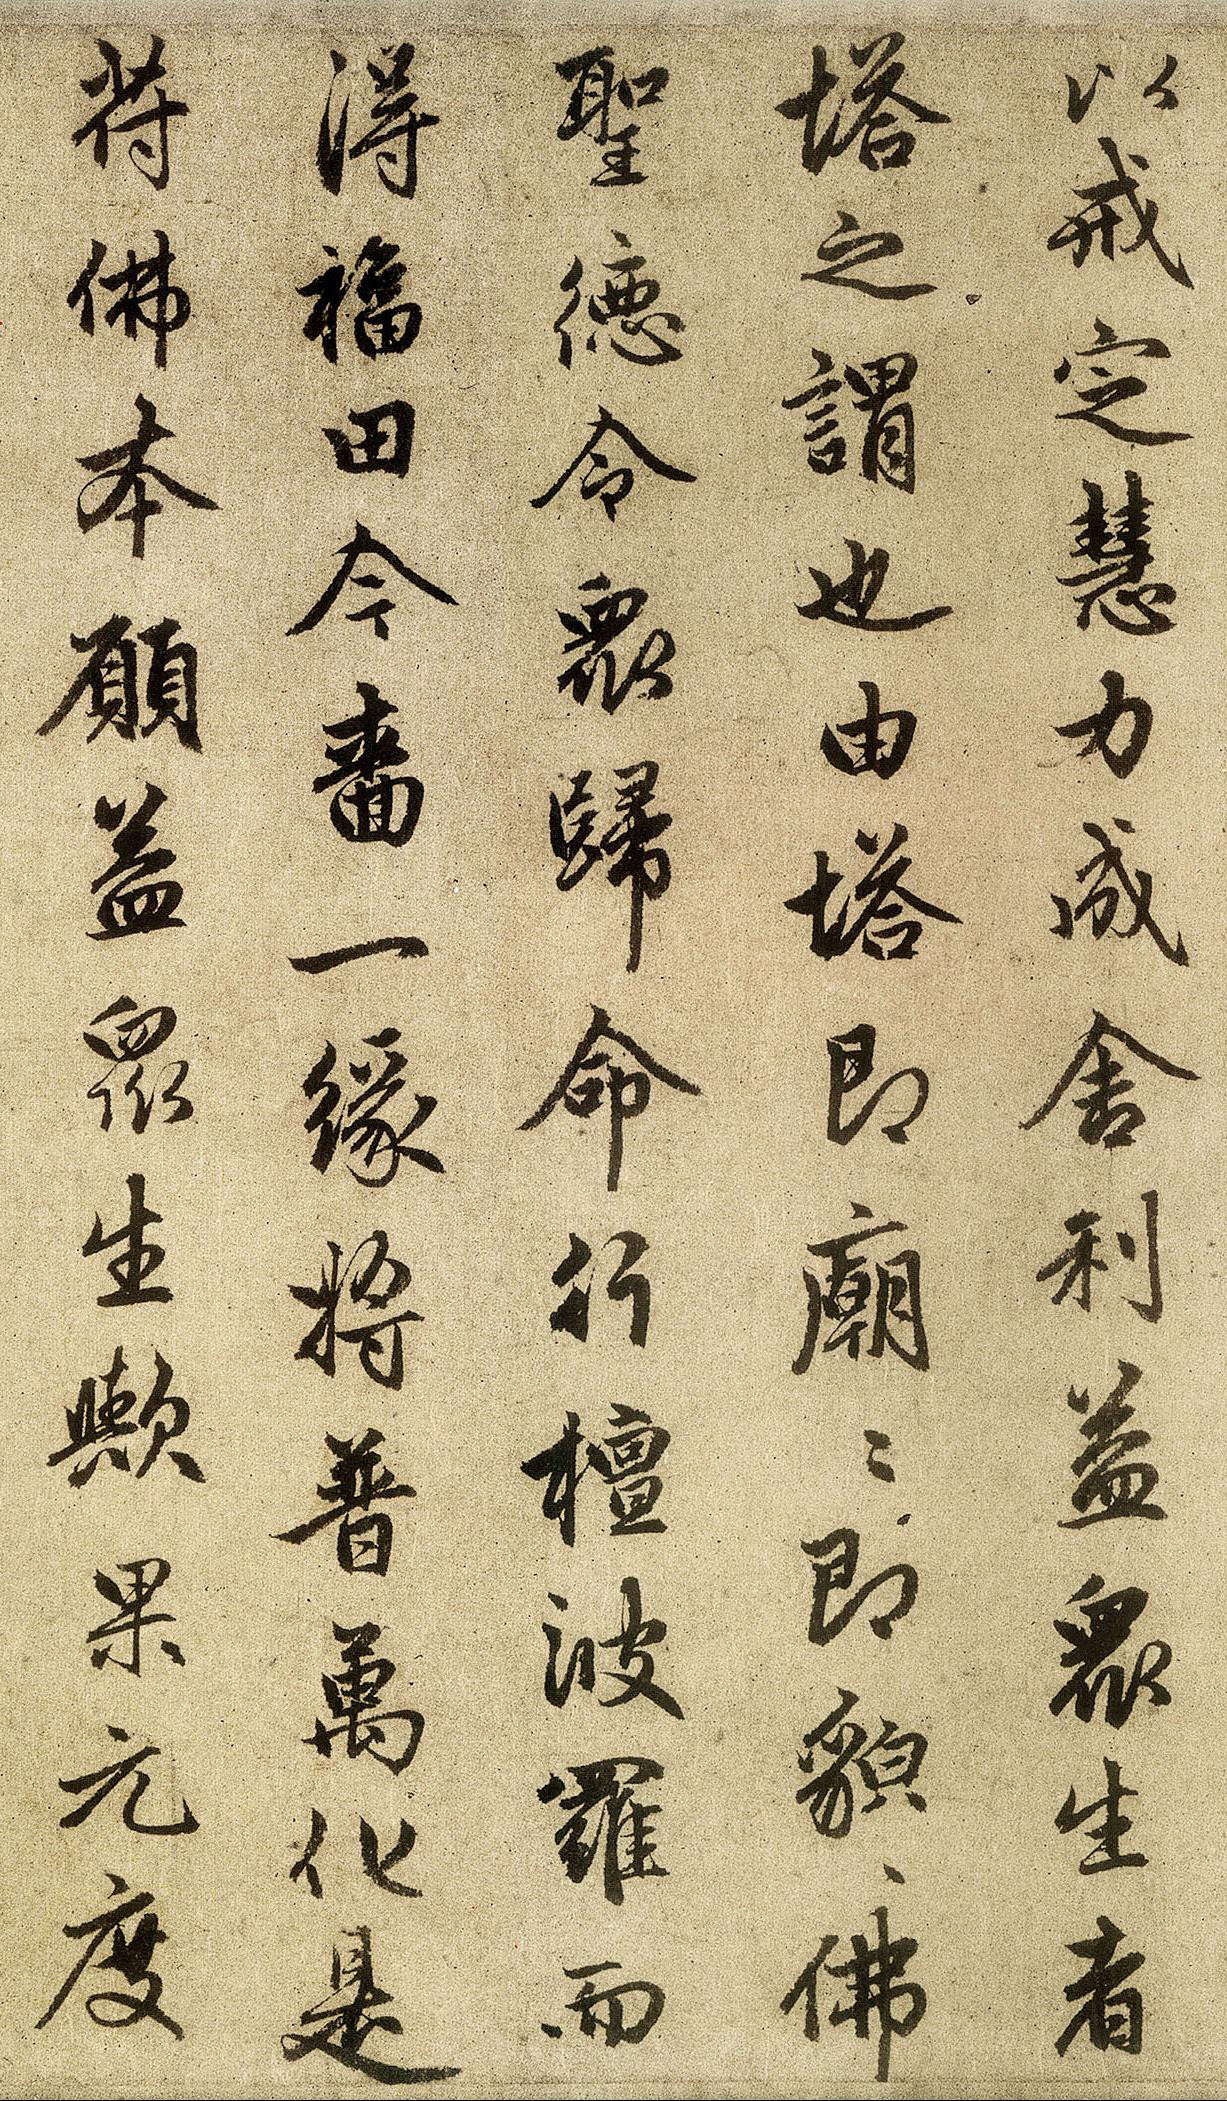 以戒定慧力成舍利益眾生者
塔之謂也由塔即廟〻即貌〻佛
聖德令眾歸命行檀波羅而
得福田今嗇一緣將普萬化是
符佛本願益眾生歟果元度